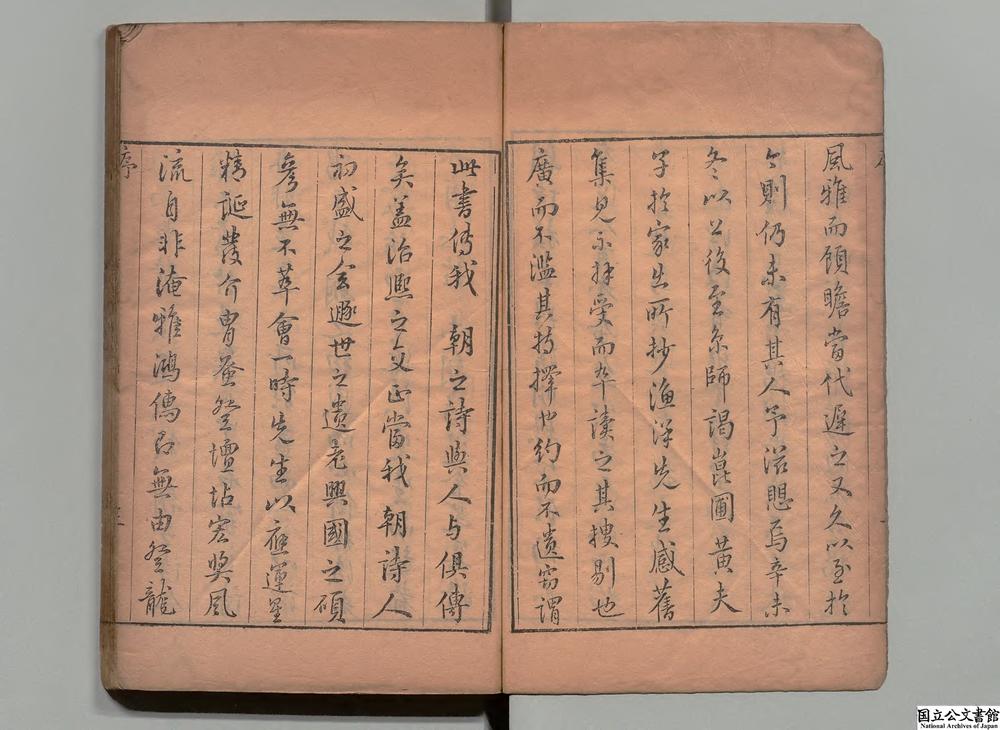 風雅而顧瞻當代遲之又久以至於
今則仍未有其人予滋恧焉辛未
冬以公後至京師謁崑圃黃夫
子於家出所抄漁洋先生感舊
集見示拜受而卒讀之其搜剔也
廣而不濫其持擇也約而不遺竊謂
此書傳我 朝之詩與人与俱傳
矣盖治熙之文正當我 朝詩人
初盛之會遯世之遺老興國之碩
彥無不萃會一時先生以應運星
精誕發介胄蚤登壇坫宏獎風
流自非淹雅鴻儁即無由登龍
序
国立公文書館
National Archives of Japan